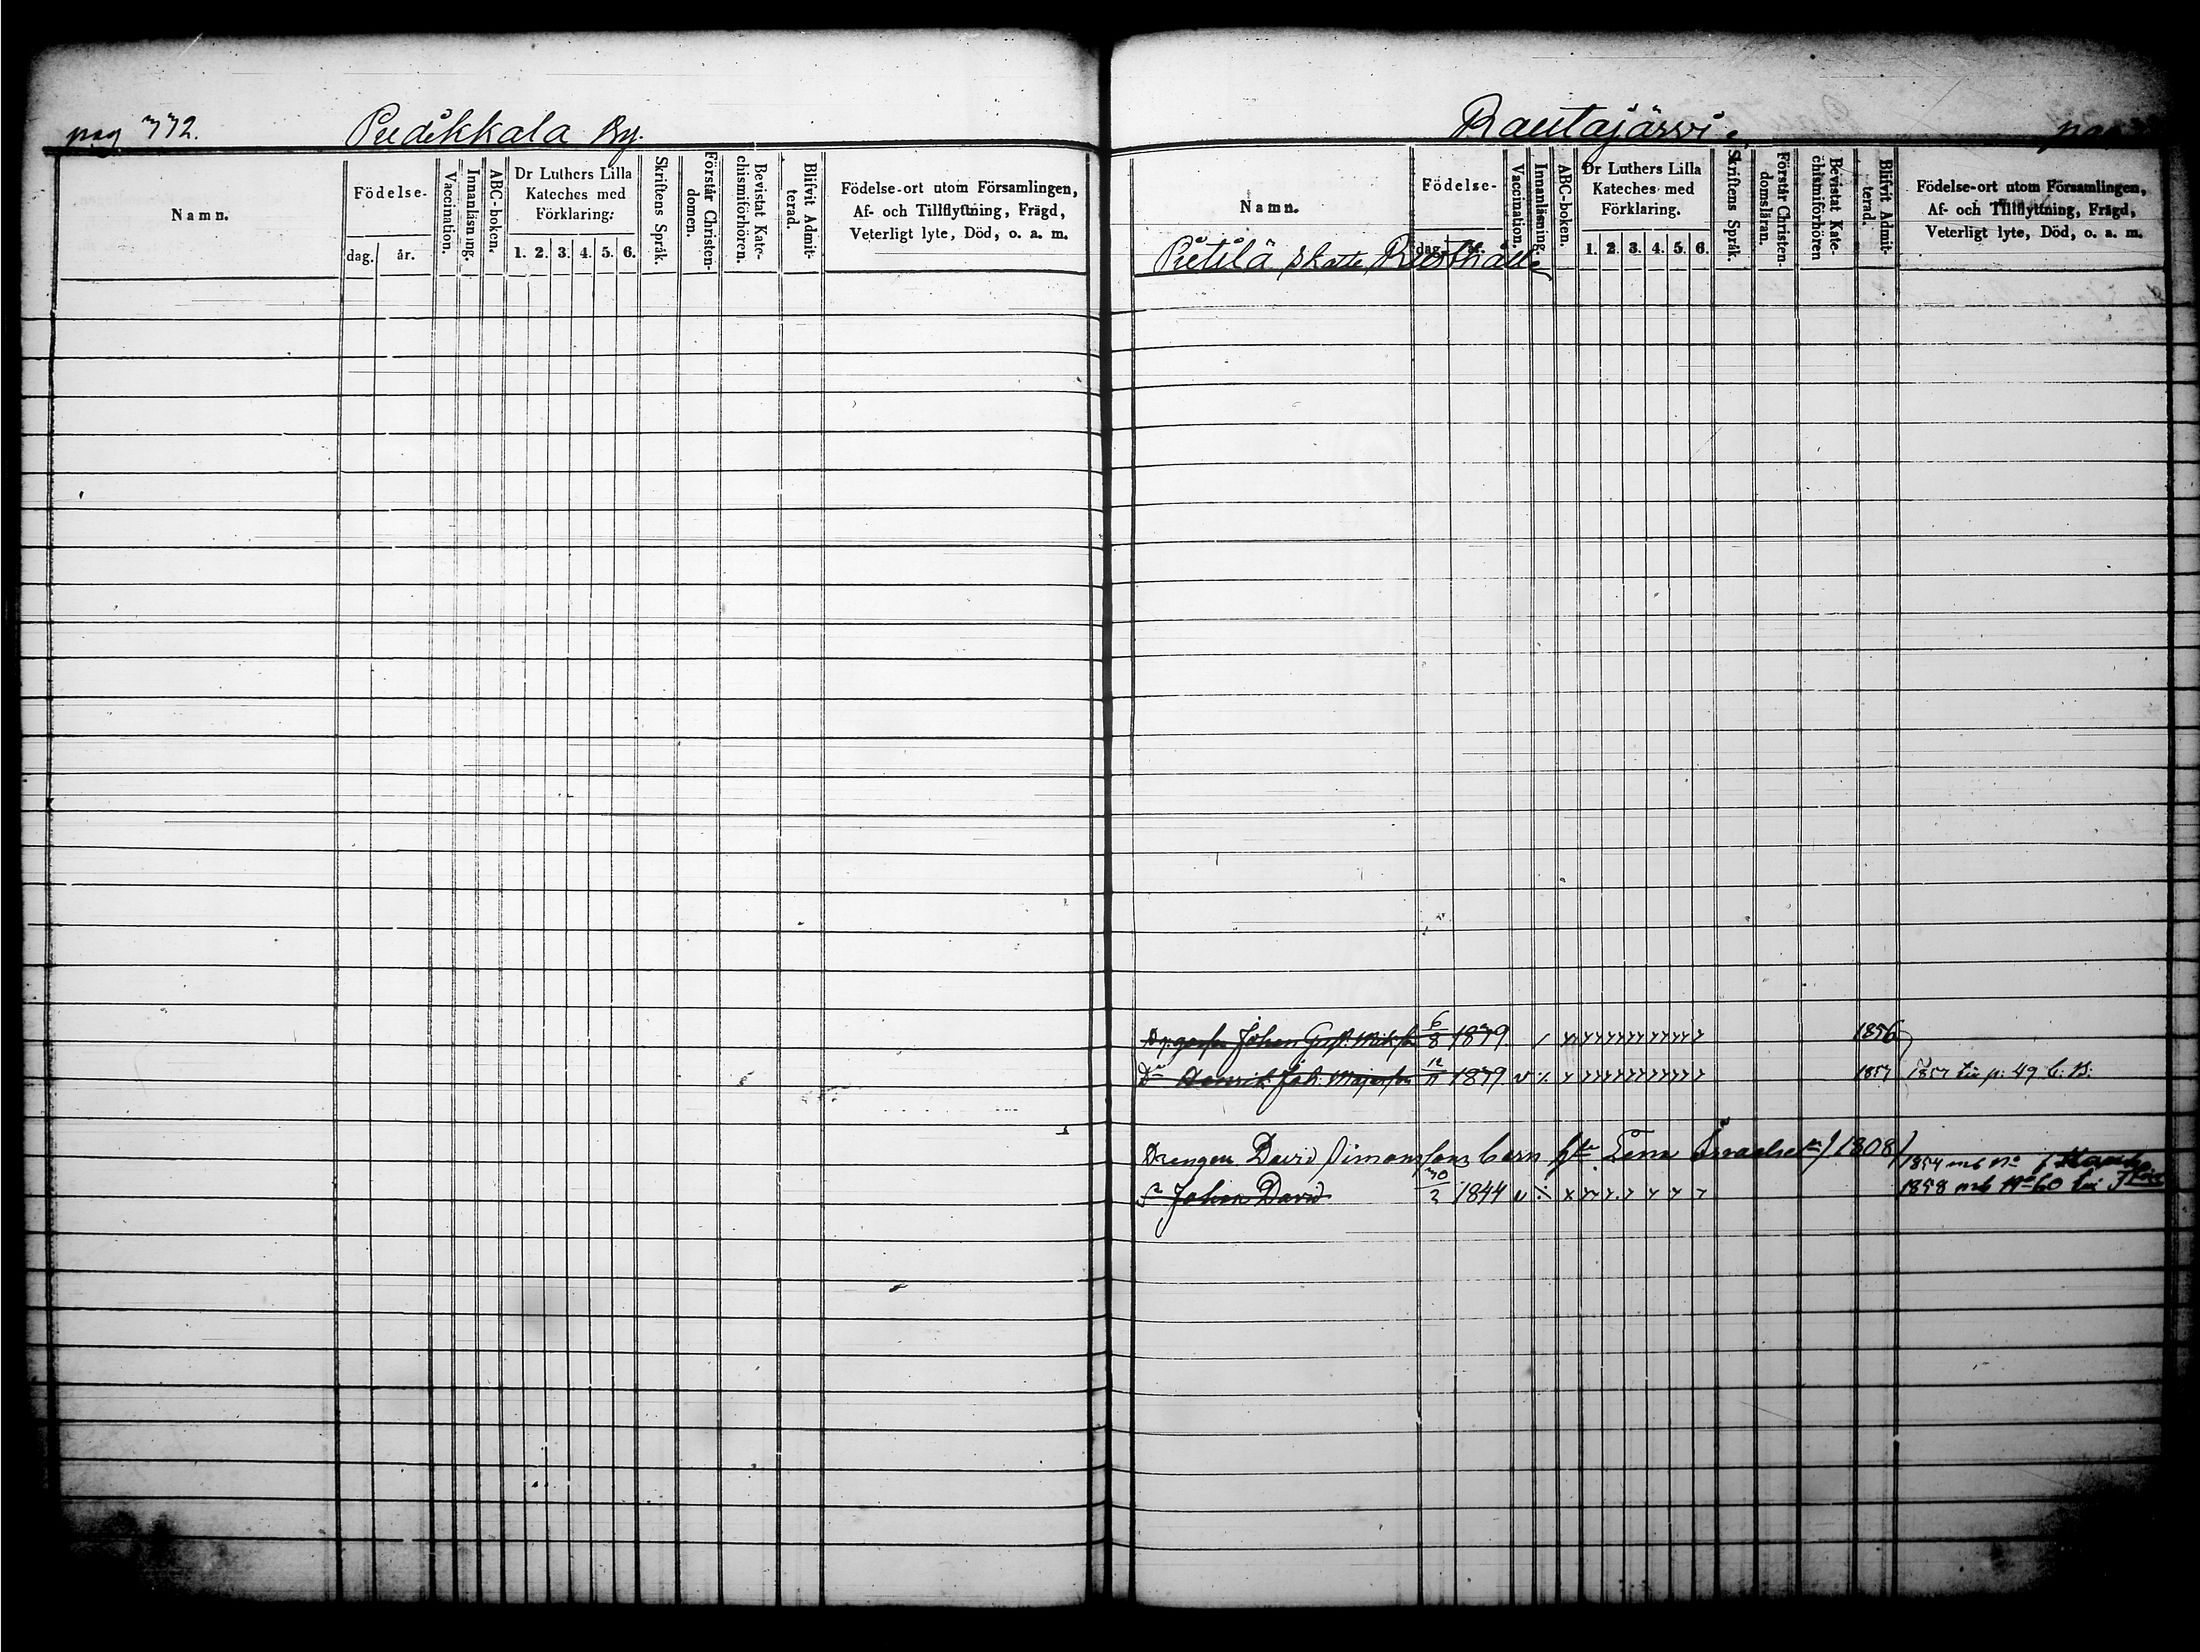 pag 772. Pudikkala By.
Namn.
Födelse-
dag. år.
Vaccination.
Innanläsning.
ABC-boken.
Dr Luthers Lilla
Kateches med
Förklaring.
1. 2. 3. 4. 5. 6.
Skriftens Språk.
Förstår Christen-
domen.
Bevistat Kate-
chismiförhören.
Blifvit Admit-
terad.
Födelse-ort utom Församlingen,
Af- och Tillflyttning, Frägd,
Veterligt lyte, Död, o. a. m.
Rautajärvi. pag
Namn.
Födelse-
dag. år.
Vaccination.
Innanläsning.
ABC-boken.
Dr Luthers Lilla
Kateches med
Förklaring.
1. 2. 3. 4. 5. 6.
Skriftens Språk.
Förstår Christen-
domsläran.
Bevistat Kate-
chismiförhören
Blifvit Admit-
terad.
Födelse-ort utom Församlingen,
Af- och Tillflyttning, Frägd,
Veterligt lyte, Död, o. a. m.
Pietilä Skatte Rusthåll
Johan Gust. 6/8 1856
Henrik Joh. 12/11 v 1857 1857 p: 49
Drengen David Simonssons barn Lena 1808
Johan David 30/2 1844 v 1858